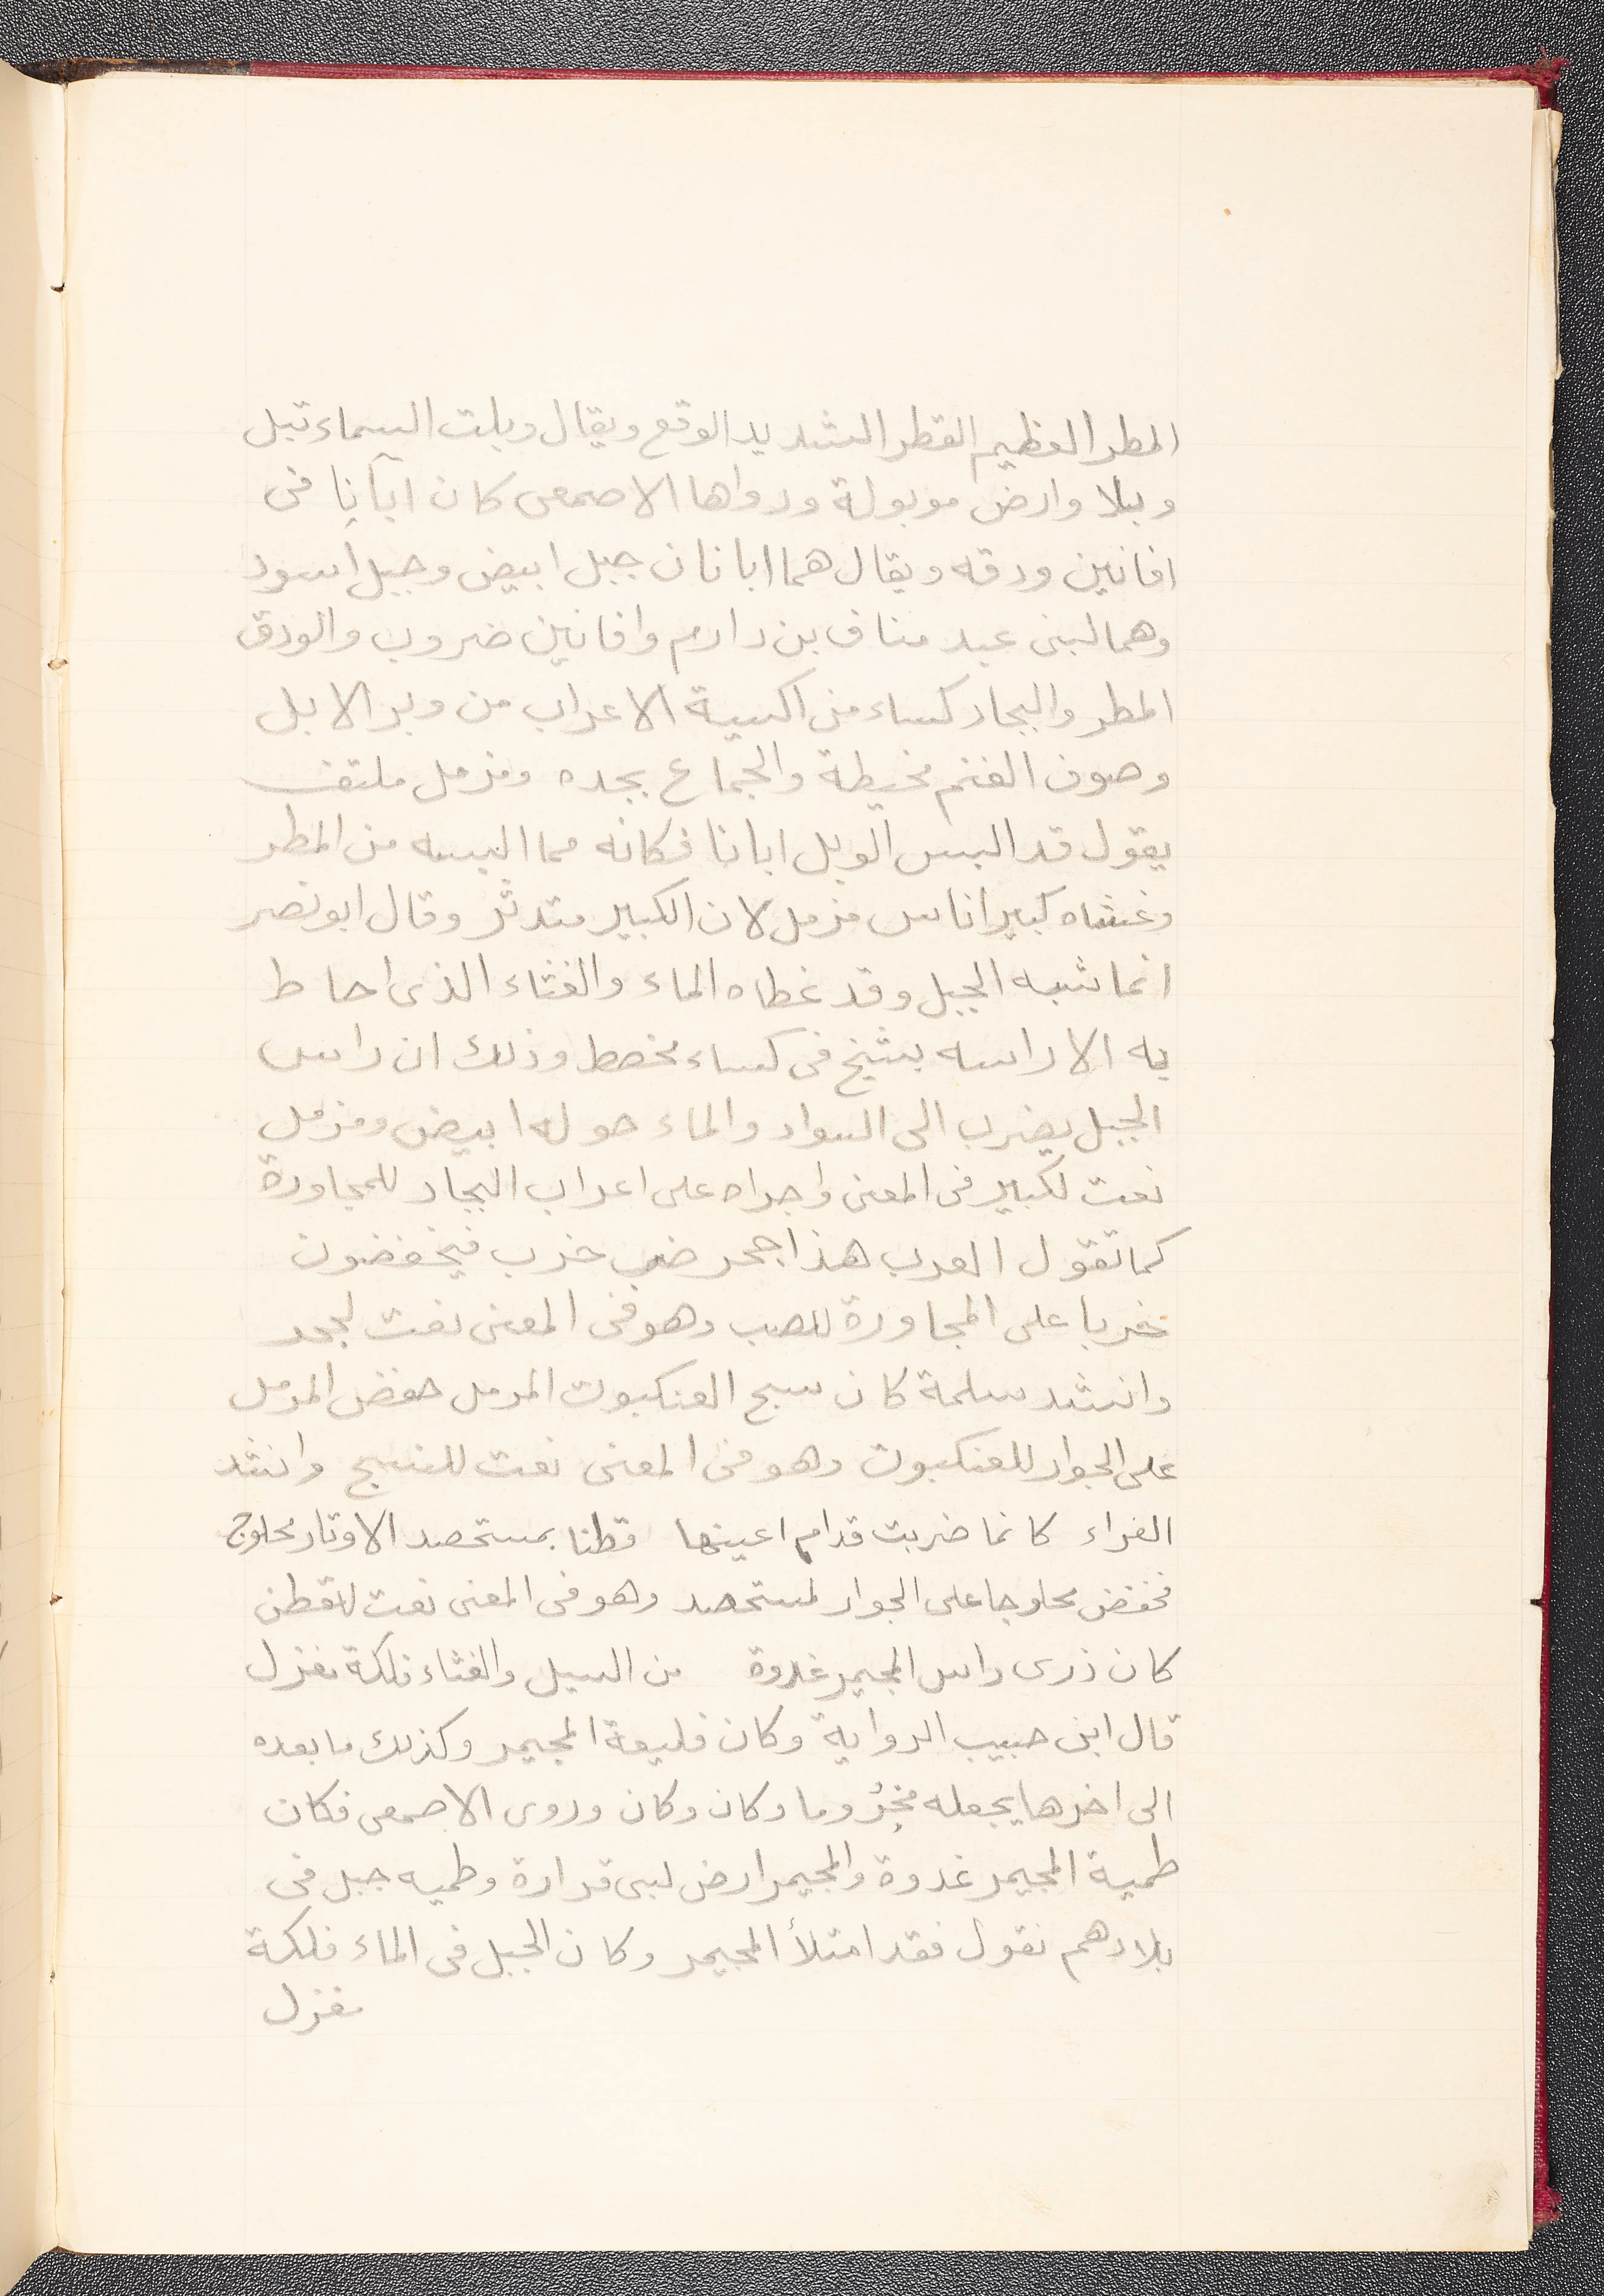 المطر العظيم القطر الشديد الوقع ويقال وبلت السماء تبل
وبلا وارض موبولة ورواها الاصمعى كان اباناً فى
افانين ودقه ويقال هما ابانان جبل ابيض وجبل اسود
وهما لبنى عبد مناف بن دارم وافانين ضروب والودق
المطر والبجاد كساء من اكسية الاعراب من وبر الابل
وصوف الغنم مخيطة والجماع بجده ومزمل ملتف
يقول قد البس الوبل ابانا فكانه مما البسه من المطر
وغشاه كبير اناس مزمل لان الكبير متدثر وقال ابو نصر
انما شبه الجبل وقد غطاه الماء والغثاء الذى احاط
به الا راسه بشيخ فى كساء مخطط وذلك ان راس
الجبل يضرب الى السواد والماء حوله ابيض ومزمل
نعت لكبير فى المعنى واجراه على اعراب البجاد للمجاورة
كما تقول العرب هذا جحر ضب خرب فيخفضون
خربا على المجاورة للصب وهو فى المعنى نعت لجحر
وانشد سلمة كان سبح العنكبوت المرمل حفض المرمل
على الجوار للعنكبوت وهو فى المعنى نعت للنسج وانشد
الفراء كانما ضربت قدام اعينها قطنا بمستحصد الاوتار محلوج
فخفض محلوجا على الجوار لمستحصد وهو فى المعنى نعت للقطن
كان ذرى راس المجيمر غدوة من السيل والغثاء فلكة مغزل
قال ابن حبيب الرواية وكان قليعة المجيمر وكذلك ما بعده
الى اخرها يجعله وما وكان وكان وروى الاصمعى فكان
طمية المجيمر غدوة والمجيمر ارض لبى فزارة وطميه جبل فى
بلادهم نقول فقد امتلأ المجيمر وكان الجبل فى الماء فلكة
مغزل